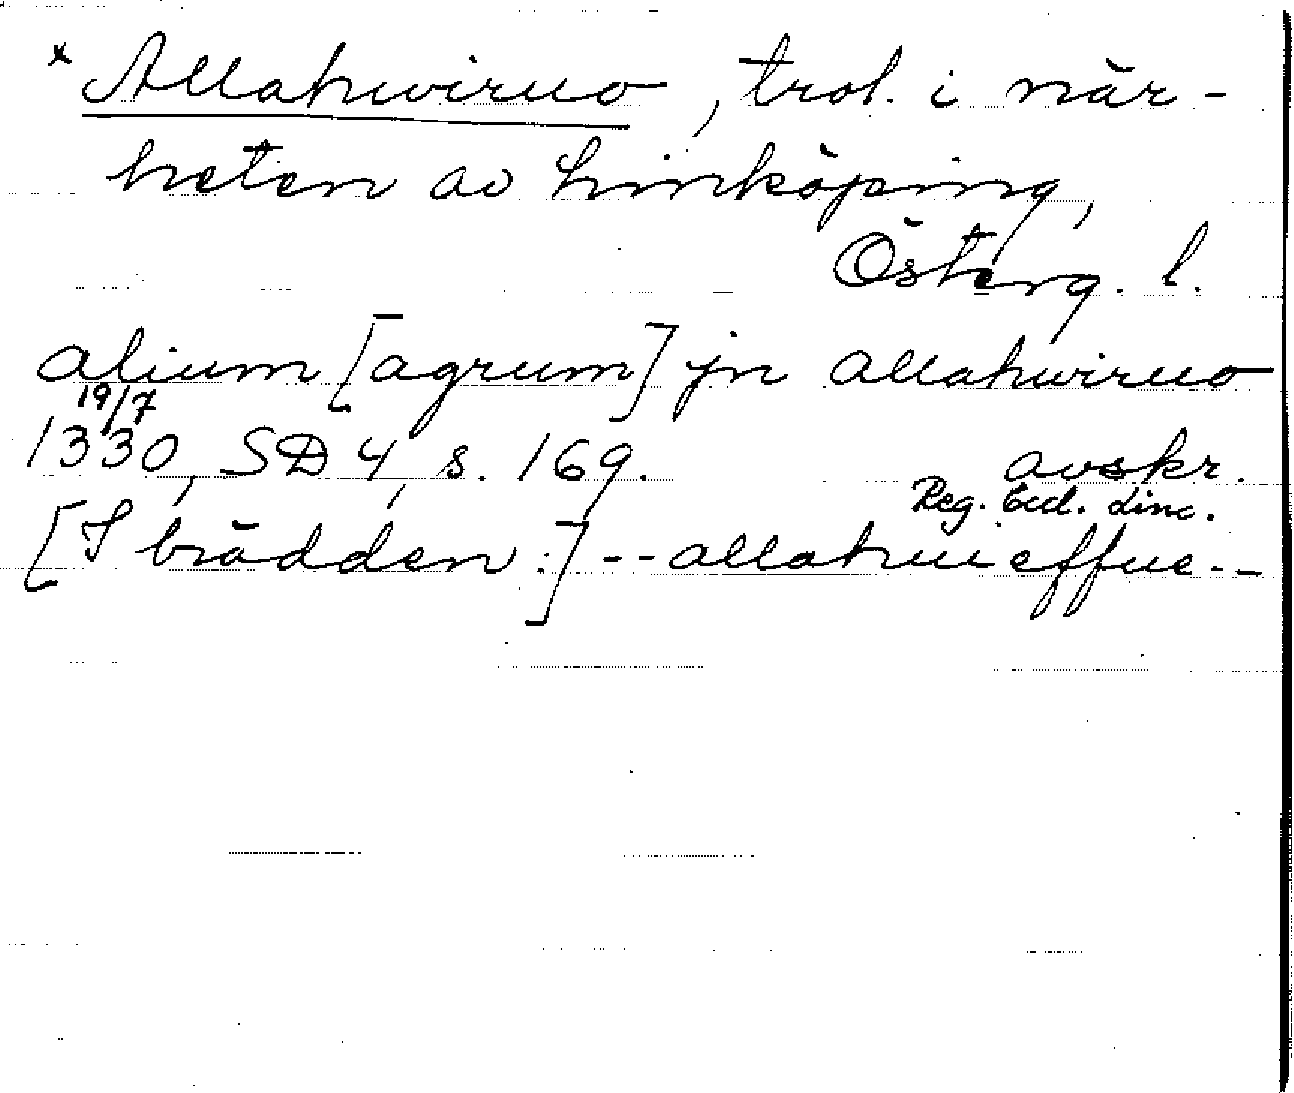 x Allahwiruo, trol. i när-
heten av Linköping,
Österg. l.
alium [agrum] jn allahwiruo
19/7
1330, SD 4, s. 169. avskr.
Reg. Eccl. Linc.
[I brädden:] -- allahui effue --